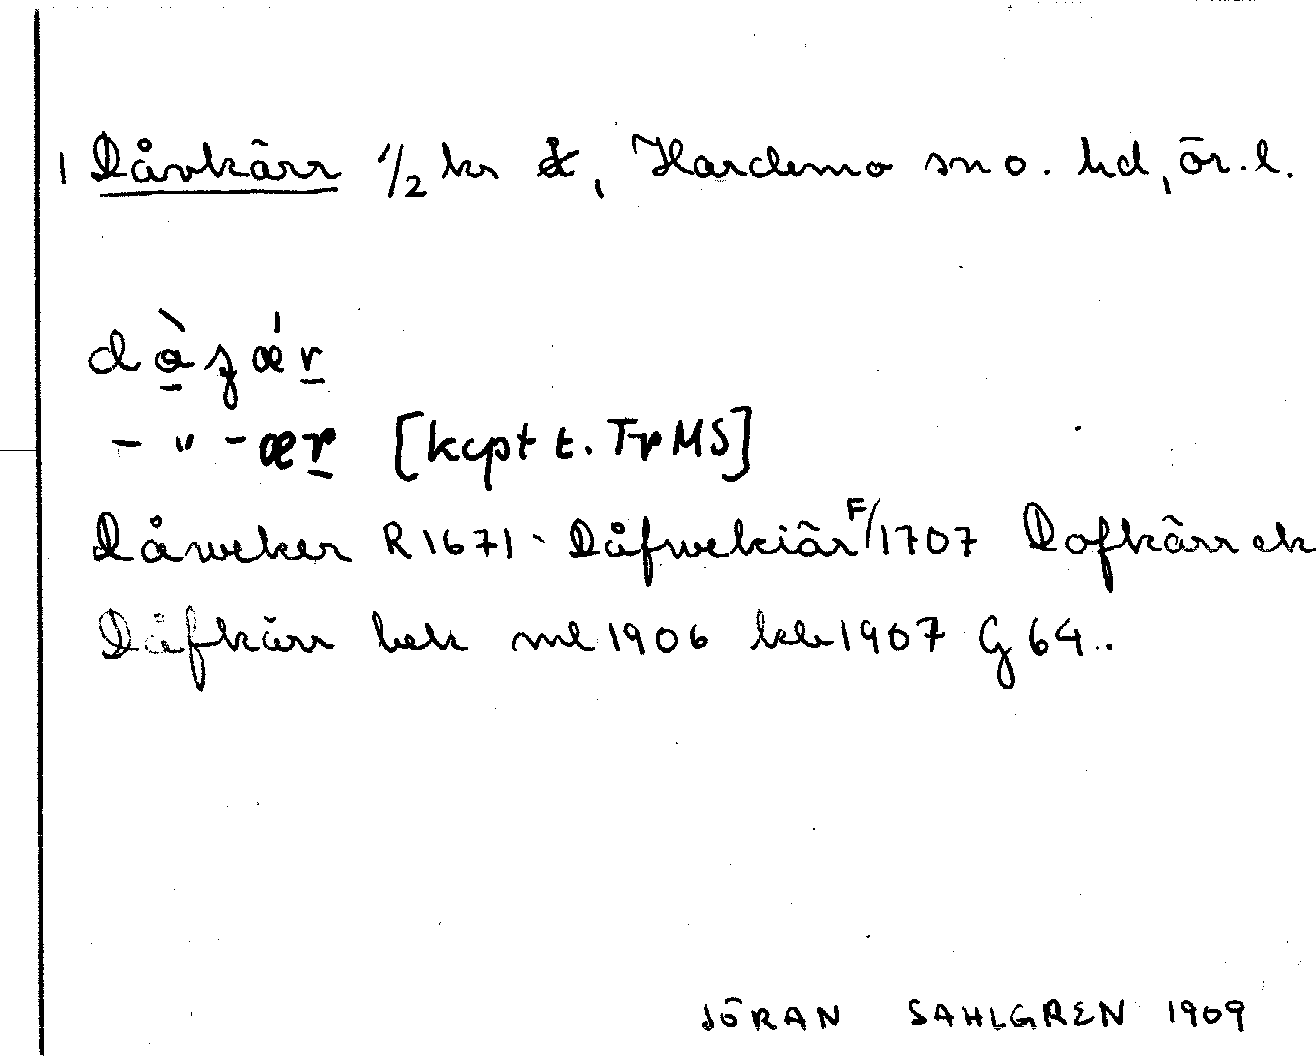 1 Dåvkärr 1/2 kr sk, Hardemo sn o. hd, ör. l.
då̀ʒǽr
- " - ær [kcpt t. TrMS]
Dåweker R 1671 - Dåfwekiär F/1707 Dofkärr ek
Dåfkärr bek ml 1906 kle 1907 G 64..
JÖRAN SAHLGREN 1909